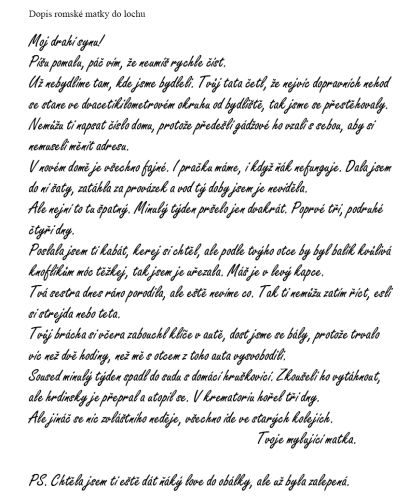 Dopis romské matky do lochu
Moj drahí synu!
Píšu pomalu, páč vím, že neumíš rychle číst.
Už nebydlíme tam, kde jsme bydleli. Tvůj tata četl, že nejvíc dopravních nehod
se stane ve dvacetikilometrovém okruhu od bydliště, tak jsme se přestěhovaly.
Nemůžu ti napsat číslo domu, protože předešlí gádžové ho vzali s sebou, aby si
nemuseli měnit adresu.
V novém domě je všechno fajné. I pračku máme, i když ňák nefunguje. Dala jsem
do ní šaty, zatáhla za provázek a vod tý doby jsem je neviděla.
Ale nejni to tu špatný. Minulý týden pršelo jen dvakrát. Poprvé tři, podruhé
čtyři dny.
Poslala jsem ti kabát, kerej si chtěl, ale podle tvýho otce by byl balík kvůlivá
knoflikům móc těžkej, tak jsem je uřezala. Máš je v levý kapce.
Tvá sestra dnes ráno porodila, ale eště nevíme co. Tak ti nemůžu zatím říct, esli
si strejda nebo teta.
Tvůj brácha si včera zabouchl klíče v autě, dost jsme se bály, protože trvalo
víc než dvě hodiny, než mě s otcem z toho auta vysvobodili.
Soused minulý týden spadl do sudu s domácí hruškovicí. Zkoušeli ho vytáhnout,
ale hrdinsky je přepral a utopil se. V krematoriu hořel tři dny.
Ale jináč se nic zvláštního neděje, všechno ide ve starých kolejích.
Tvoje mylující matka.
PS. Chtěla jsem ti eště dát ňáký love do obálky, ale už byla zalepená.